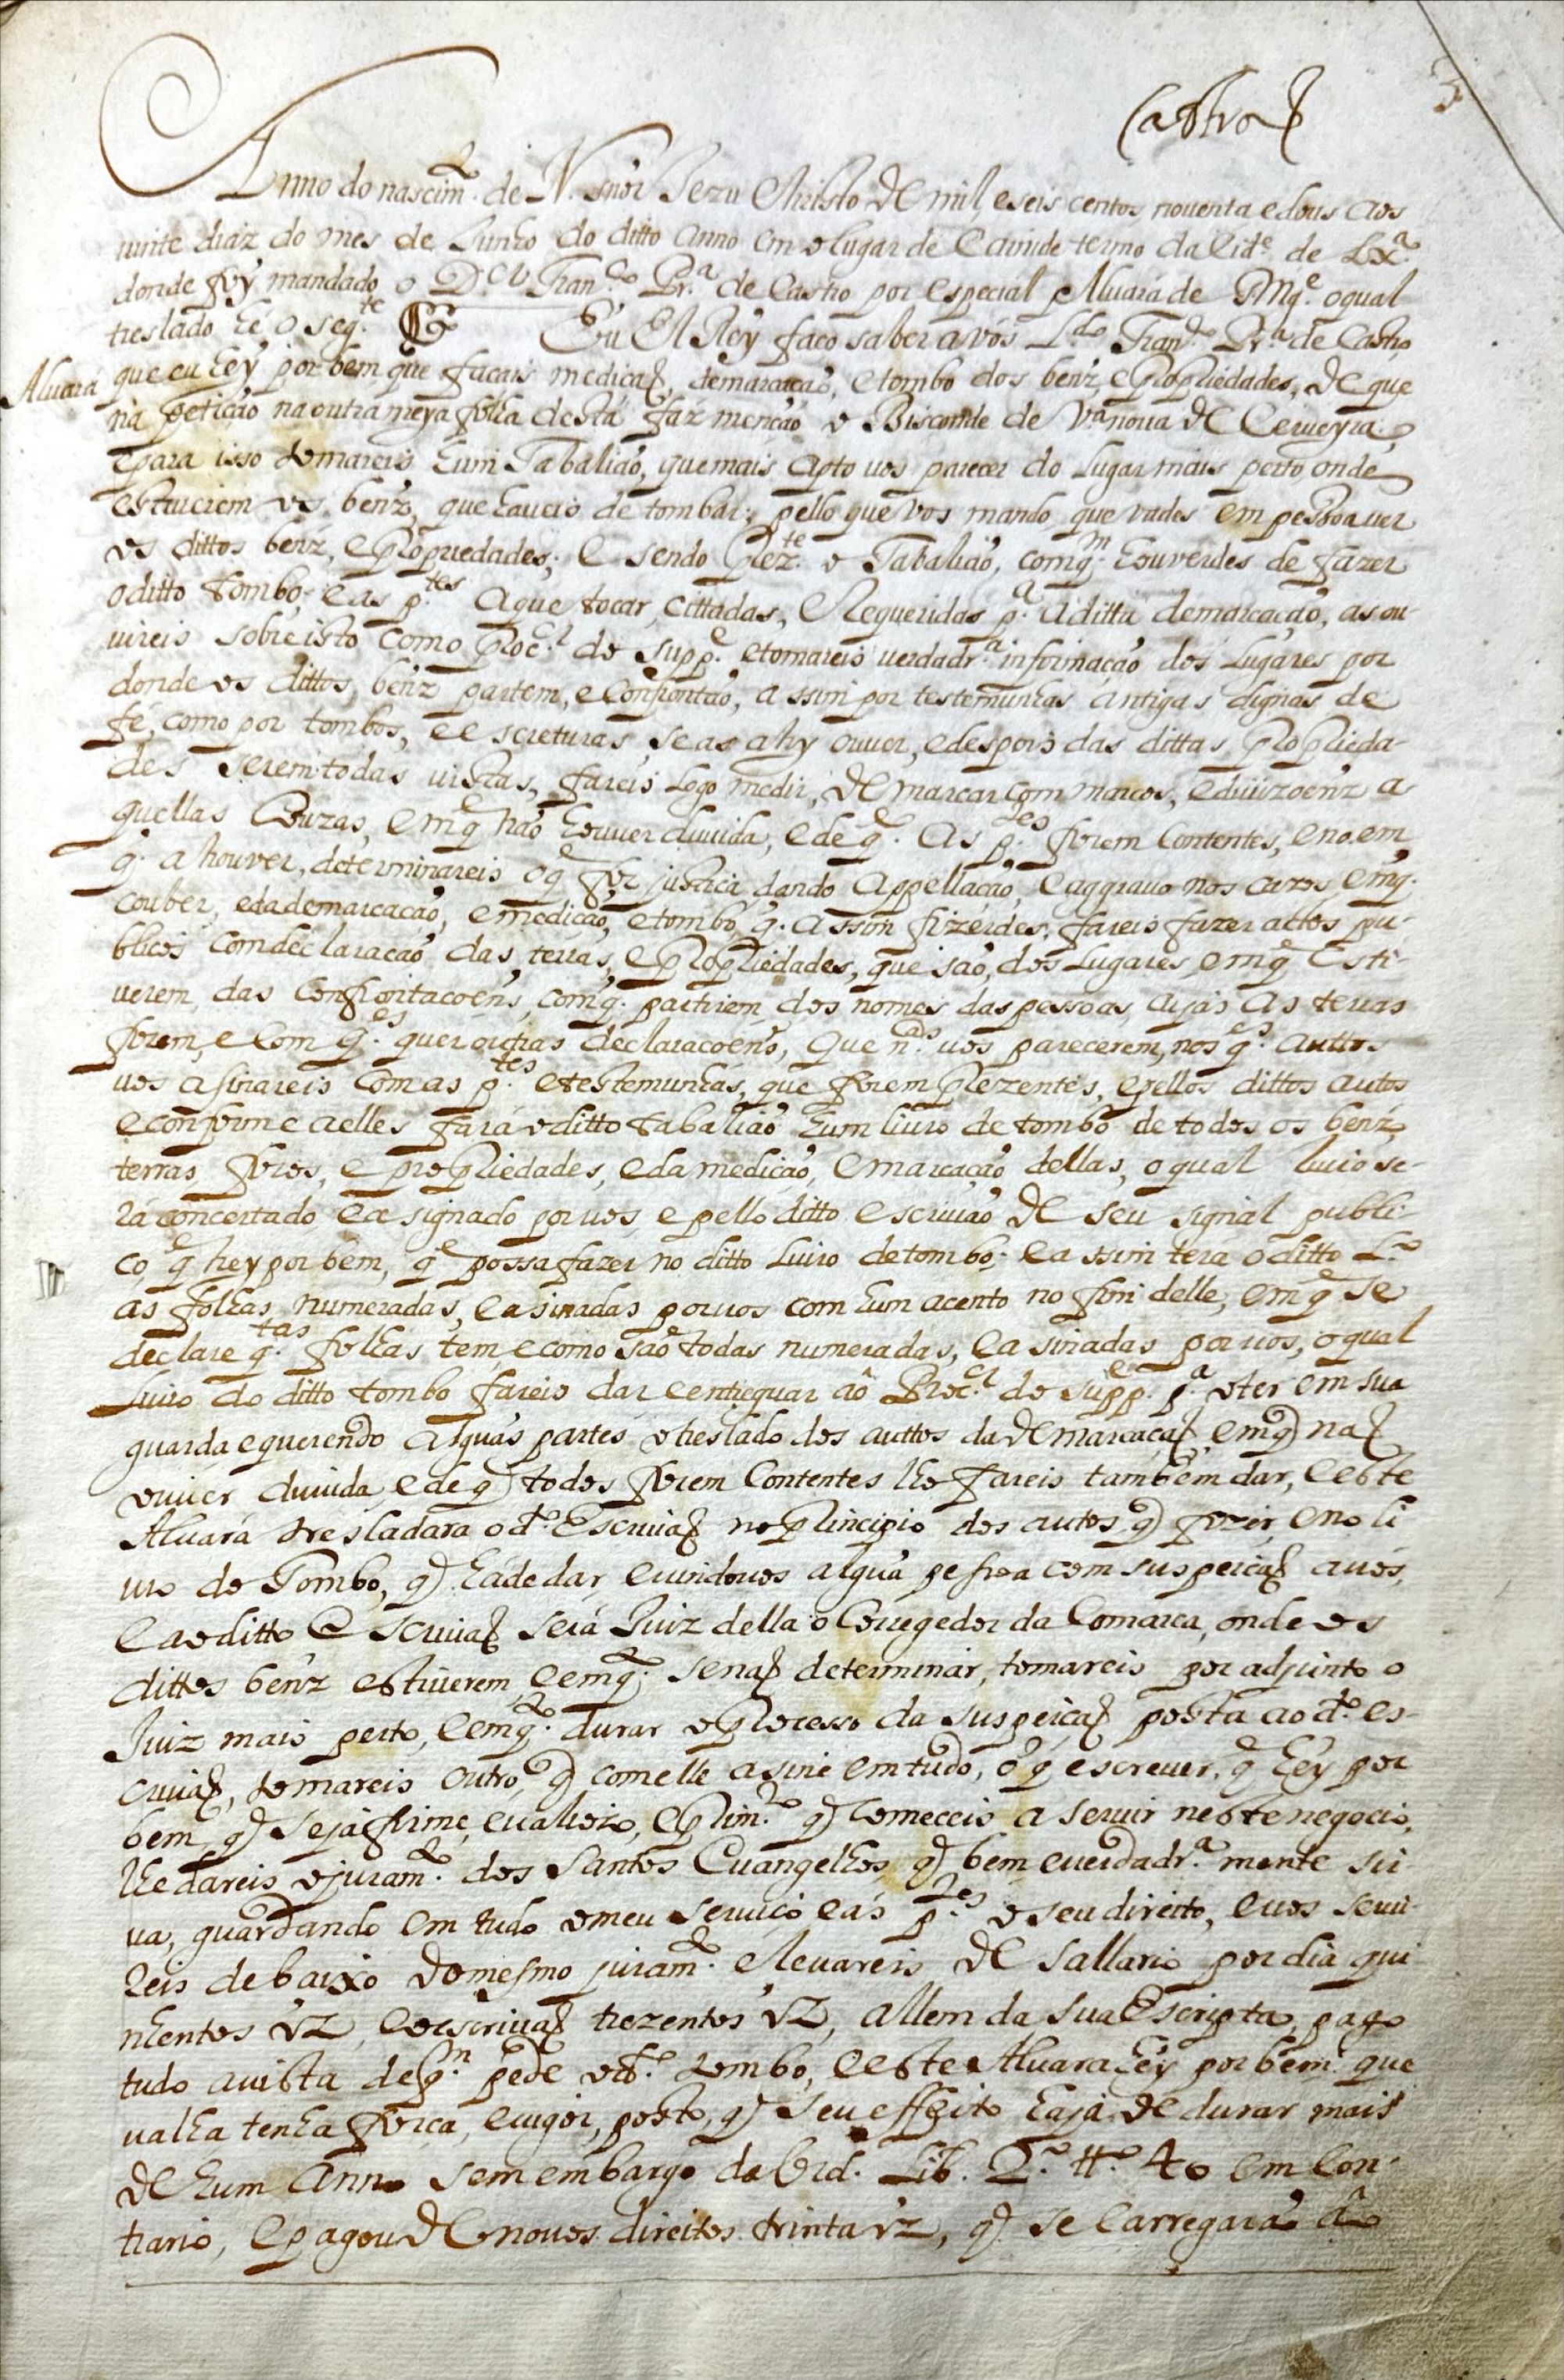 Castro
3
Anno do nascim.to de N. Snõr Jezu Christo de mil, e seis centos noventa e dous aos
vinte diaz do mes de Junho do ditto anno em o lugar de Camide termo da Cid.e de Lx.a
donde foy mandado o D.or Fran.co Pr.a de Castro por especial Alvará de S Mg.e o qual
treslado hé o seg.te Eu El Rey faço saber a vós L.do Fran.co Pr.a de Castro
Alvará
que eu hey por bem que façais mediçaõ, demarcaçaõ, e tombo dos benz, e propriedades, de que
na petição na outra meya folha desta faz menção o Bisconde de V.a nova de Cerveyra,
e para isso tomareis hum Tabalião, que mais apto vos parecer do Lugar mais perto, onde
estiverem os benz, que haveis de tombar; pello que vos mando, que vades em pessoa ver
os dittos benz, e propriedades; e sendo prez.te o Tabalião, com q.m houverdes de fazer
o ditto tombo; e as p.tes a que tocar, cittadas, e Requeridas p.a a ditta demarcação, as ou-
vireis sobre isto como proc.or do supp.e e tomareis verdadr.a informação dos Lugares por
donde os dittos, benz partem, e confrontão, assim por testemunhas antigas dignas de
fé, como por tombos, e escreturas, se as ahy ouver, e despois das dittas proprieda-
des serem todas vistas, fareis logo medir, demarcar com marcos, e divizoenz a-
quellas Couzas, em q não houver duvida, e de q. as p.es forem contentes, e no em
q. a houver, determinareis o q for justiça dando Appellação, e aggravo nos cazos em q.
couber, e da demarcação, e medição, e tombo, q. assim fizerdes, fareis fazer actos pu-
blicos com declaração das terras, e propriedades, que são, dos Lugares em q. esti-
verem, das confrontaçoens, com q. partirem, dos nomes das pessoas, cujas as terras
forem, e com q.es quer outras declaraçoens, que n.as vos parecerem, nos q.es auttos
vos asinareis com as p.tes e testemunhas, que forem prezentes, e pellos dittos autos
e conforme a elles fará o ditto tabalião hum livro de tombo de todos os benz,
terras, foros, e propriedades, e da medição, e marcação dellas, o qual livro se-
rá concertado e asignado por vos e pello ditto escrivão de seu signal publi-
co q hey por bem, q possa fazer no ditto Livro de tombo; e assim tera o ditto L.o
as folhas numeradas, e asinadas por vos com hum acento no fim delle, em q se
declare q.tas folhas tem, e como são todas numeradas, e asinadas por vos, o qual
Livro do ditto tombo fareis dar e entregar aó Proc.or do supp.e p.a o ter em sua
guarda e querendo alguás partes o treslado dos auttos da demarcaçaõ, em q naõ
ouver duvida, e de q todos forem contentes lho fareis tambem dar, e este
Alvará tresladara o d.o Escrivaõ no principio dos autos q fizer, e no li
vro do Tombo, q ha de dar, e vindovos alguá pessoa com suspeiçaõ a vós,
e ao ditto Escrivaõ será Juiz della o Corregedor da Comarca, onde os
dittos benz estiverem, e em q.to se naõ determinar, tomareis por adjunto o
Juiz mais perto, e em q.to durar o processo da suspeiçaõ posta ao d.o es-
crivaõ, tomareis outro q com elle asine em tudo, o q escrever, q hey por
bem, q seja firme, e valiozo, e prim.ro q comeceis a servir neste negocio,
lhe dareis o juram.to dos Santos Evangelhos, q bem, e verdadr.a mente sir
va, guardando em tudo o meu serviço e ás p.tes o seu direito, e vos servi-
reis debaixo do mesmo juram.to e levareis de sallario por dia qui
nhentos rz, e o escrivaõ trezentos rz, allem da sua Escripta, pago
tudo a vista de q.m pede o d.o tombo, e este Alvara hey por bem, que
valha tenha força, e vigor, posto, q seu effeito haja de durar mais
de hum Anno sem embargo da Ord. Lib. 2.o tt.o 40 em con-
trario, e pagou de novos direitos trinta rz, q se carregará aó